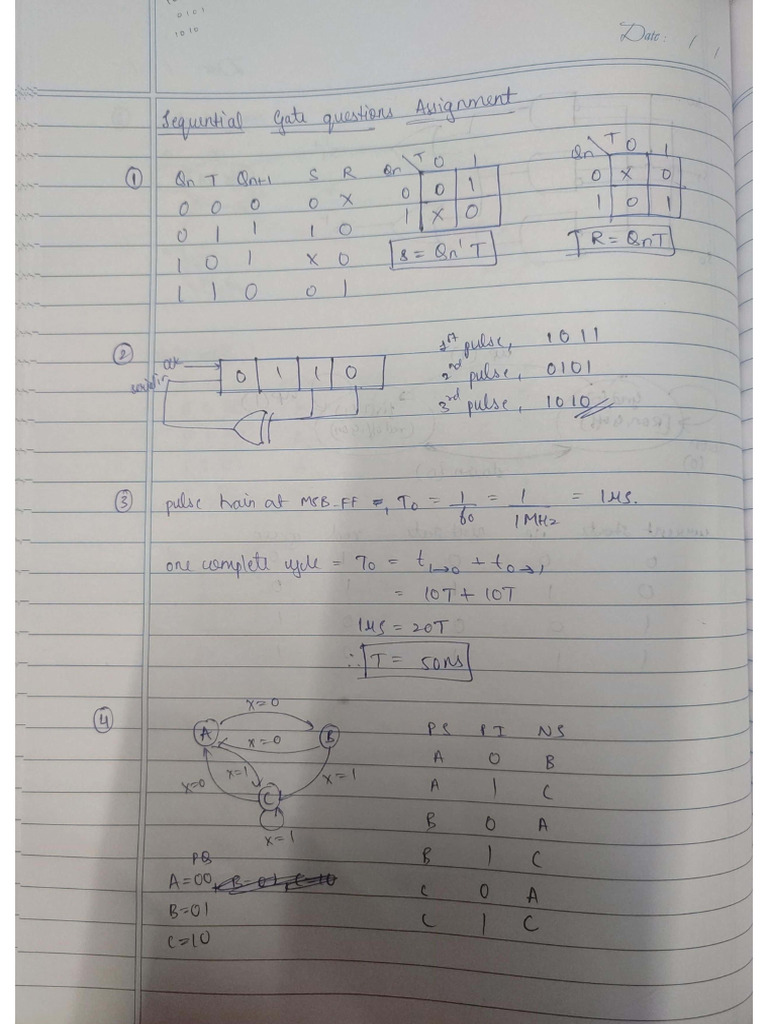 0101
1010
Date: / /
Sequential Gate questions Assignment
① Qn T Qn+1 S R
0 0 0 0 X
0 1 1 1 0
1 0 1 X 0
1 1 0 0 1
Qn T 0 1
0 0 1
1 X 0
S = Qn' T
Qn T 0 1
0 X 0
1 0 1
R = QnT
② clk
serial in
0 1 1 0
1st pulse, 1011
2nd pulse, 0101
3rd pulse, 1010
③ pulse train at MSB FF =, T0 = 1/f0 = 1/1MHz = 1μs.
one complete cycle = T0 = t1→0 + t0→1
= 10T + 10T
1μs = 20T
∴ T = 50ns
④ x=0
A x=0 B
x=0 x=1 C x=1
x=1
PS PI NS
A 0 B
A 1 C
B 0 A
B 1 C
C 0 A
C 1 C
PQ
A=00
B=01
C=10